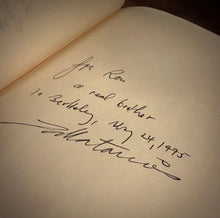 for Ron
a real brother
in Berkeley, May 24, 1995